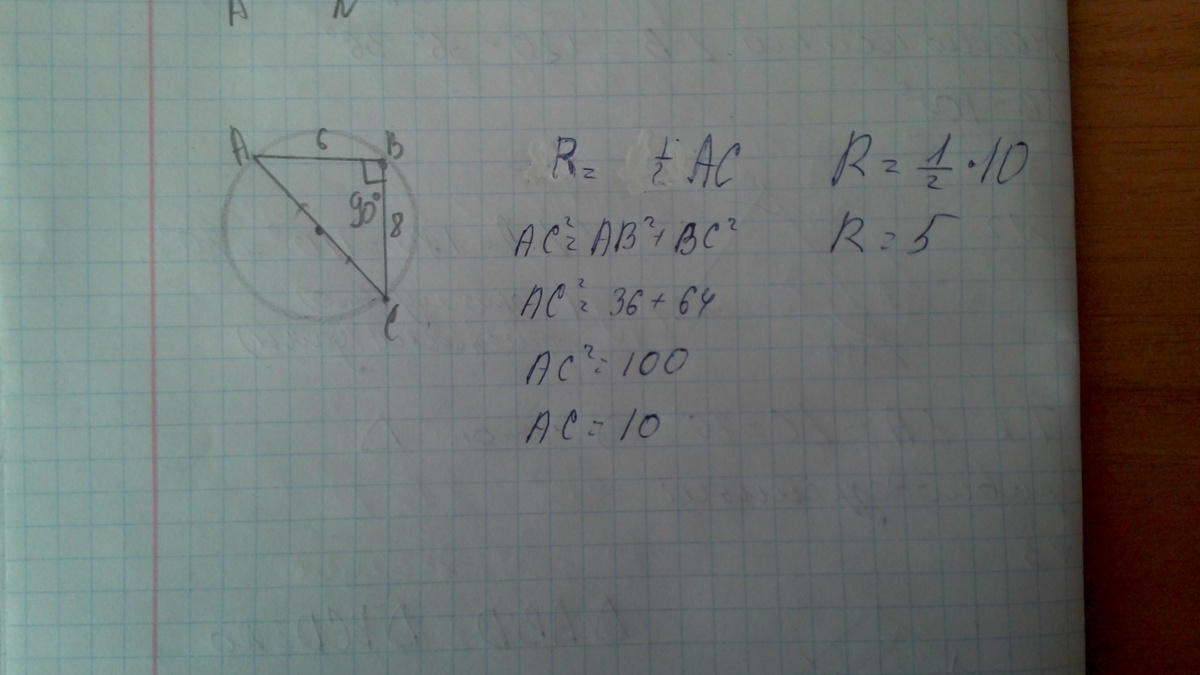 A N
A 6 B
90° 8
C
R = 1/2 AC
AC² = AB² + BC²
AC² = 36 + 64
AC² = 100
AC = 10
R = 1/2 · 10
R = 5